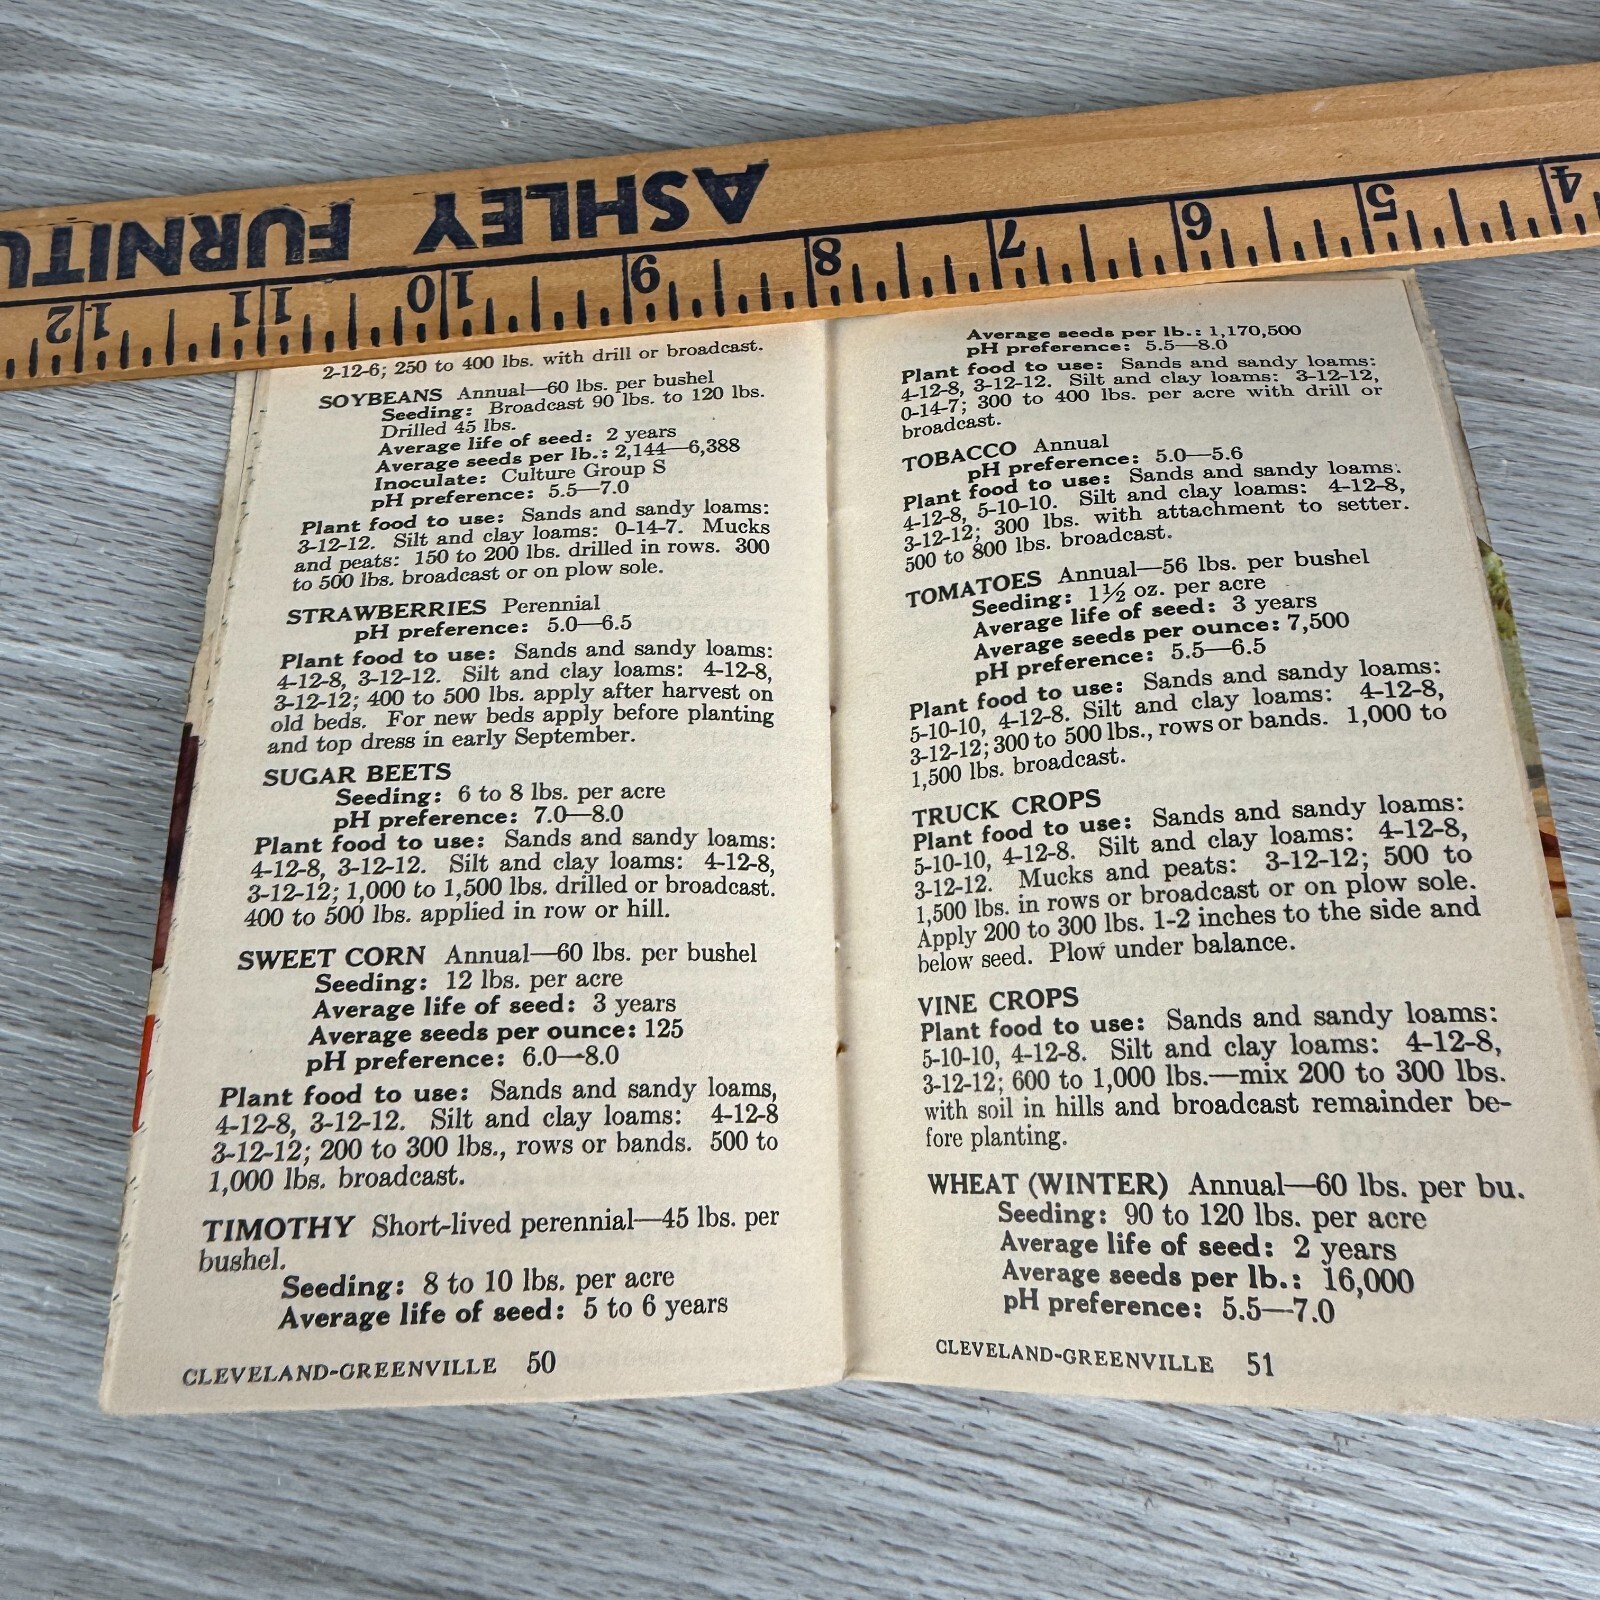 ASHLEY FURNITU
4 5 6 7 8 9 10 11 12
2-12-6; 250 to 400 lbs. with drill or broadcast.
SOYBEANS Annual—60 lbs. per bushel
Seeding: Broadcast 90 lbs. to 120 lbs.
Drilled 45 lbs.
Average life of seed: 2 years
Average seeds per lb.: 2,144—6,388
Inoculate: Culture Group S
pH preference: 5.5—7.0
Plant food to use: Sands and sandy loams:
3-12-12. Silt and clay loams: 0-14-7. Mucks
and peats: 150 to 200 lbs. drilled in rows. 300
to 500 lbs. broadcast or on plow sole.
STRAWBERRIES Perennial
pH preference: 5.0—6.5
Plant food to use: Sands and sandy loams:
4-12-8, 3-12-12. Silt and clay loams: 4-12-8,
3-12-12; 400 to 500 lbs. apply after harvest on
old beds. For new beds apply before planting
and top dress in early September.
SUGAR BEETS
Seeding: 6 to 8 lbs. per acre
pH preference: 7.0—8.0
Plant food to use: Sands and sandy loams:
4-12-8, 3-12-12. Silt and clay loams: 4-12-8,
3-12-12; 1,000 to 1,500 lbs. drilled or broadcast.
400 to 500 lbs. applied in row or hill.
SWEET CORN Annual—60 lbs. per bushel
Seeding: 12 lbs. per acre
Average life of seed: 3 years
Average seeds per ounce: 125
pH preference: 6.0—8.0
Plant food to use: Sands and sandy loams,
4-12-8, 3-12-12. Silt and clay loams: 4-12-8
3-12-12; 200 to 300 lbs., rows or bands. 500 to
1,000 lbs. broadcast.
TIMOTHY Short-lived perennial—45 lbs. per
bushel.
Seeding: 8 to 10 lbs. per acre
Average life of seed: 5 to 6 years
CLEVELAND-GREENVILLE 50
Average seeds per lb.: 1,170,500
pH preference: 5.5—8.0
Plant food to use: Sands and sandy loams:
4-12-8, 3-12-12. Silt and clay loams: 3-12-12,
0-14-7; 300 to 400 lbs. per acre with drill or
broadcast.
TOBACCO Annual
pH preference: 5.0—5.6
Plant food to use: Sands and sandy loams:
4-12-8, 5-10-10. Silt and clay loams: 4-12-8,
3-12-12; 300 lbs. with attachment to setter.
500 to 800 lbs. broadcast.
TOMATOES Annual—56 lbs. per bushel
Seeding: 1½ oz. per acre
Average life of seed: 3 years
Average seeds per ounce: 7,500
pH preference: 5.5—6.5
Plant food to use: Sands and sandy loams:
5-10-10, 4-12-8. Silt and clay loams: 4-12-8,
3-12-12; 300 to 500 lbs., rows or bands. 1,000 to
1,500 lbs. broadcast.
TRUCK CROPS
Plant food to use: Sands and sandy loams:
5-10-10, 4-12-8. Silt and clay loams: 4-12-8,
3-12-12. Mucks and peats: 3-12-12; 500 to
1,500 lbs. in rows or broadcast or on plow sole.
Apply 200 to 300 lbs. 1-2 inches to the side and
below seed. Plow under balance.
VINE CROPS
Plant food to use: Sands and sandy loams:
5-10-10, 4-12-8. Silt and clay loams: 4-12-8,
3-12-12; 600 to 1,000 lbs.—mix 200 to 300 lbs.
with soil in hills and broadcast remainder be-
fore planting.
WHEAT (WINTER) Annual—60 lbs. per bu.
Seeding: 90 to 120 lbs. per acre
Average life of seed: 2 years
Average seeds per lb.: 16,000
pH preference: 5.5—7.0
CLEVELAND-GREENVILLE 51